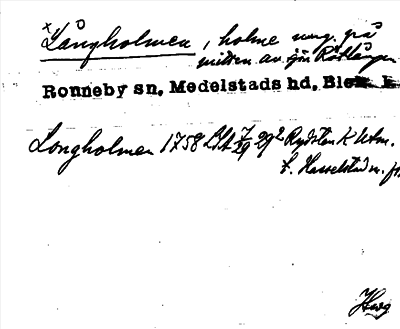 Långholmen, holme ung. på
mitten av sjn Rötlången
Ronneby sn, Medelstads hd, Blek. l.
Longholmen 1758 LSA 29² Rydsten K Utm.
t. Hasselstad m. fl.
Hwg